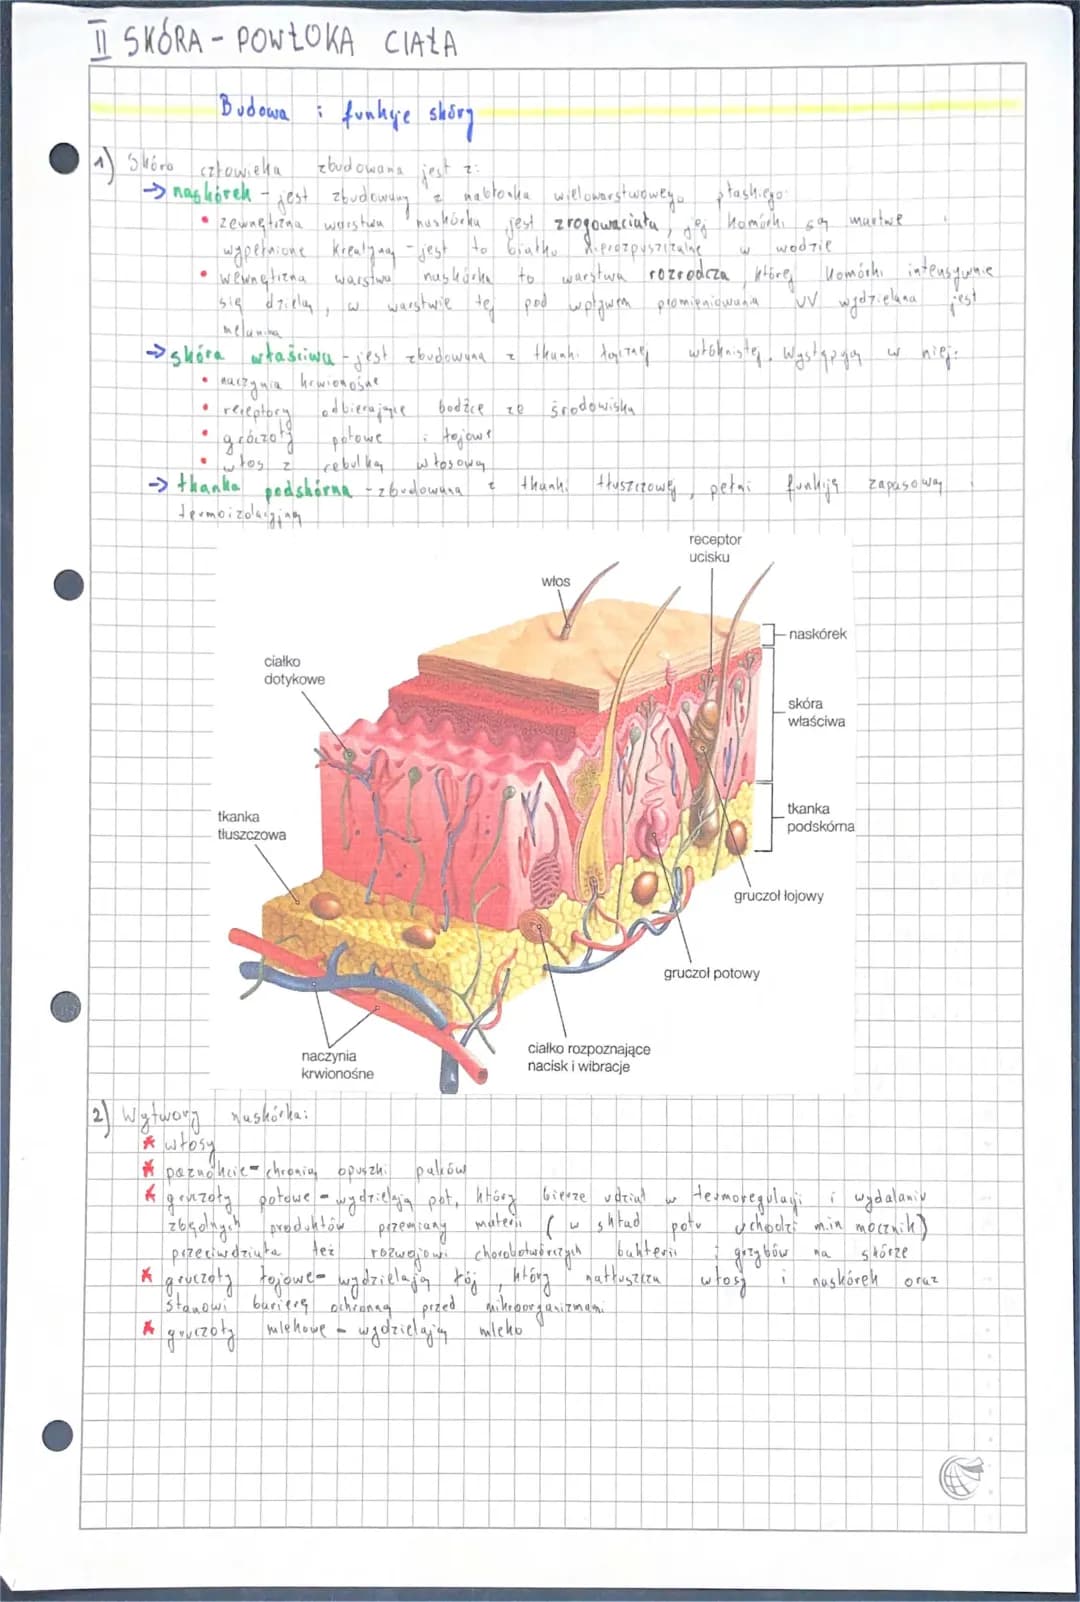 II SKÓRA - POWŁOKA CIAŁA
Budowa i funkcje skóry
1) Skóra człowieka zbudowana jest z:
→ naskórek - jest zbudowany z nabłonka wielowarstwowego płaskiego:
• zewnętrzna warstwa naskórka jest zrogowaciała, jej komórki są martwe i
wypełnione kreatyną - jest to białko nierozpuszczalne w wodzie
• wewnętrzna warstwa naskórka to warstwa rozrodcza, której komórki intensywnie
się dzielą, w warstwie tej pod wpływem promieniowania UV wydzielana jest
melanina
→ skóra właściwa - jest zbudowana z tkanki łącznej włóknistej. Występują w niej:
• naczynia krwionośne
• receptory odbierające bodźce ze środowiska
• gróczoły potowe i łojowe
• włos z cebulką włosową
→ tkanka podskórna - zbudowana z tkanki tłuszczowej, pełni funkcję zapasową i
termoizolacyjną
receptor
ucisku
włos
naskórek
ciałko
dotykowe
skóra
właściwa
tkanka
tłuszczowa
tkanka
podskórna
gruczoł łojowy
gruczoł potowy
ciałko rozpoznające
nacisk i wibracje
naczynia
krwionośne
2) Wytwory naskórka:
* włosy
* paznokcie - chronią opuszki palców
* gruczoły potowe - wydzielają pot, który bierze udział w termoregulacji i wydalaniu
zbędnych produktów przemiany materii (w skład potu wchodzi m.in mocznik)
przeciwdziała też rozwojowi chorobotwórczych bakterii i grzybów na skórze
* gruczoły łojowe - wydzielają łój, który natłuszcza włosy i naskórek oraz
stanowi barierę ochronną przed mikroorganizmami
* gruczoły mlekowe - wydzielają mleko